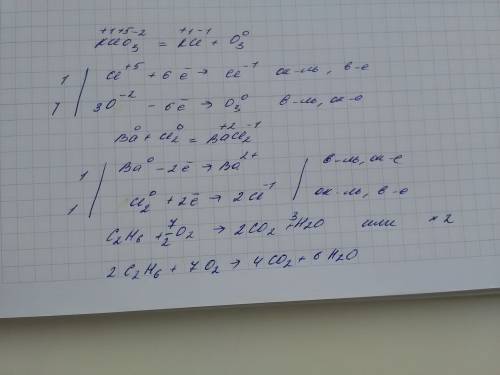 +1 +5 -2 +1 -1 0
KClO3 = KCl + O3
1 | Cl+5 + 6ē → Cl-1 ок-ль, в-е
1 | 3O-2 - 6ē → O3 0 в-ль, ок-е
Ba0 + Cl2 0 = Ba+2Cl2 -1
1 | Ba0 - 2ē → Ba2+ | в-ль, ок-е
1 | Cl2 0 + 2ē → 2Cl-1 | ок-ль, в-е
C2H6 + 7/2 O2 → 2CO2 + 3H2O или × 2
2C2H6 + 7O2 → 4CO2 + 6H2O